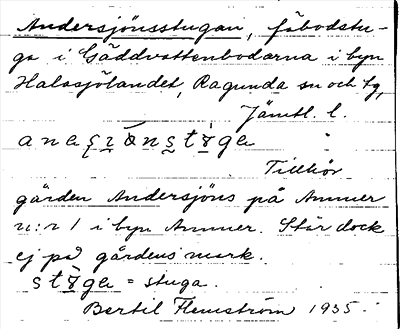 Andersjönsstugan, fäbodstu-
ga i Gäddvattenbodarna i byn
Halasjölandet, Ragunda sn och tg,
Jämtl. l.
Tillhör
gården Andersjöns på Ammer
n:r 1 i byn Ammer. Står dock
ej på gårdens mark.
= stuga.
Bertil Flemström 1935.